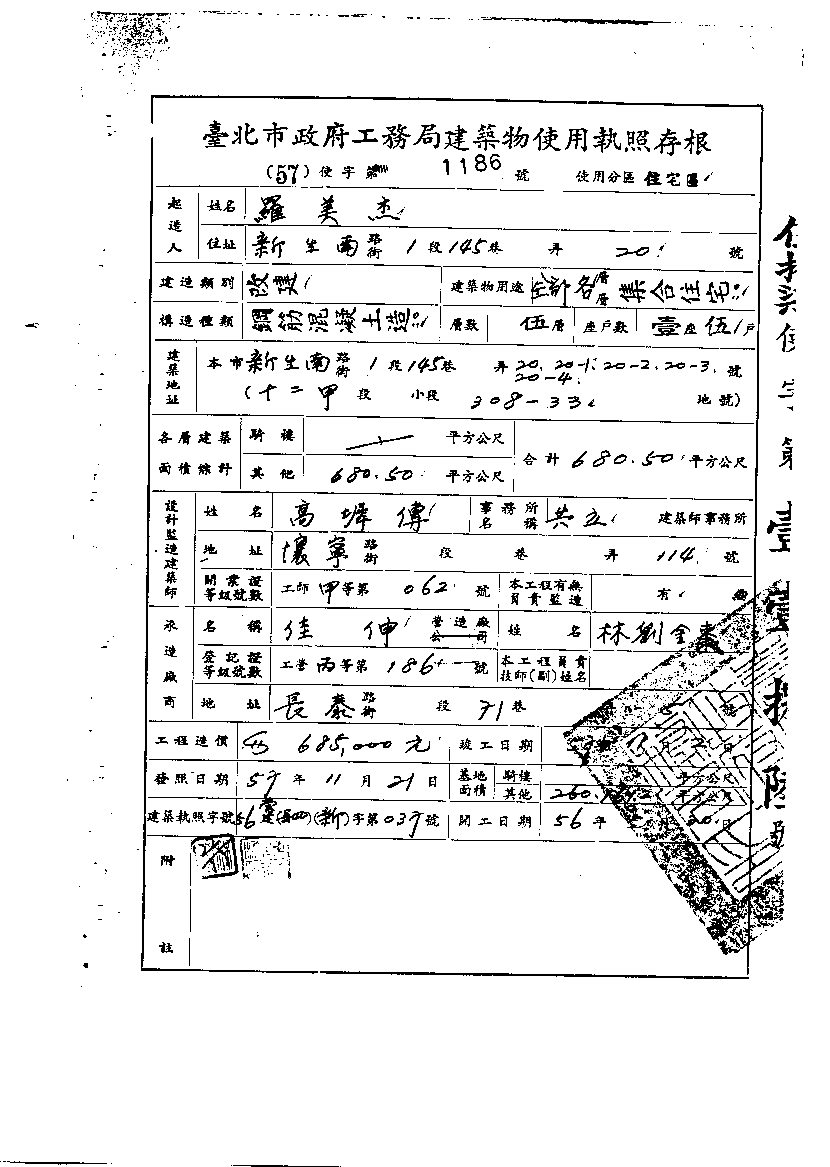 臺北市政府工務局建築物使用執照存根
(57) 使字第 1186 號 使用分區 住宅區
起造人 姓名 羅美杰
住址 新生南 路街 1 段 145 巷 弄 20 號
建造類別 改建 建築物用途 各層 集合住宅
構造種類 鋼筋混凝土造 層數 伍 層 座戶數 壹 座 伍 戶
建築地址 本市 新生南 路街 1 段 145 巷 弄 20. 20-1. 20-2. 20-3. 號
20-4.
(十二甲 段 小段 308-33 地號)
各層建築面積總計 騎樓 平方公尺 合計 680.50 平方公尺
其他 680.50 平方公尺
設計監造建築師 姓名 高 傳 事務所名稱 共立 建築師事務所
地址 懷寧 路街 段 巷 弄 114 號
開業證等級號數 工師 甲 等第 062 號 本工程有無負責監造 有 無
承造廠商 名稱 佳伸 營造廠公司 姓名 林劉金
登記證等級號數 工營 丙 等第 186 號 本工程負責技師(副)姓名
地址 長泰 路街 段 71 巷 5 號
工程造價 685,000元 竣工日期 月 日
發照日期 57 年 11 月 21 日 基地面積 騎樓 平方公尺
其他 260. 平方公尺
建築執照字號 56 建 (新) 字第 039 號 開工日期 56 年 20 日
附註
使字第壹壹捌陸號